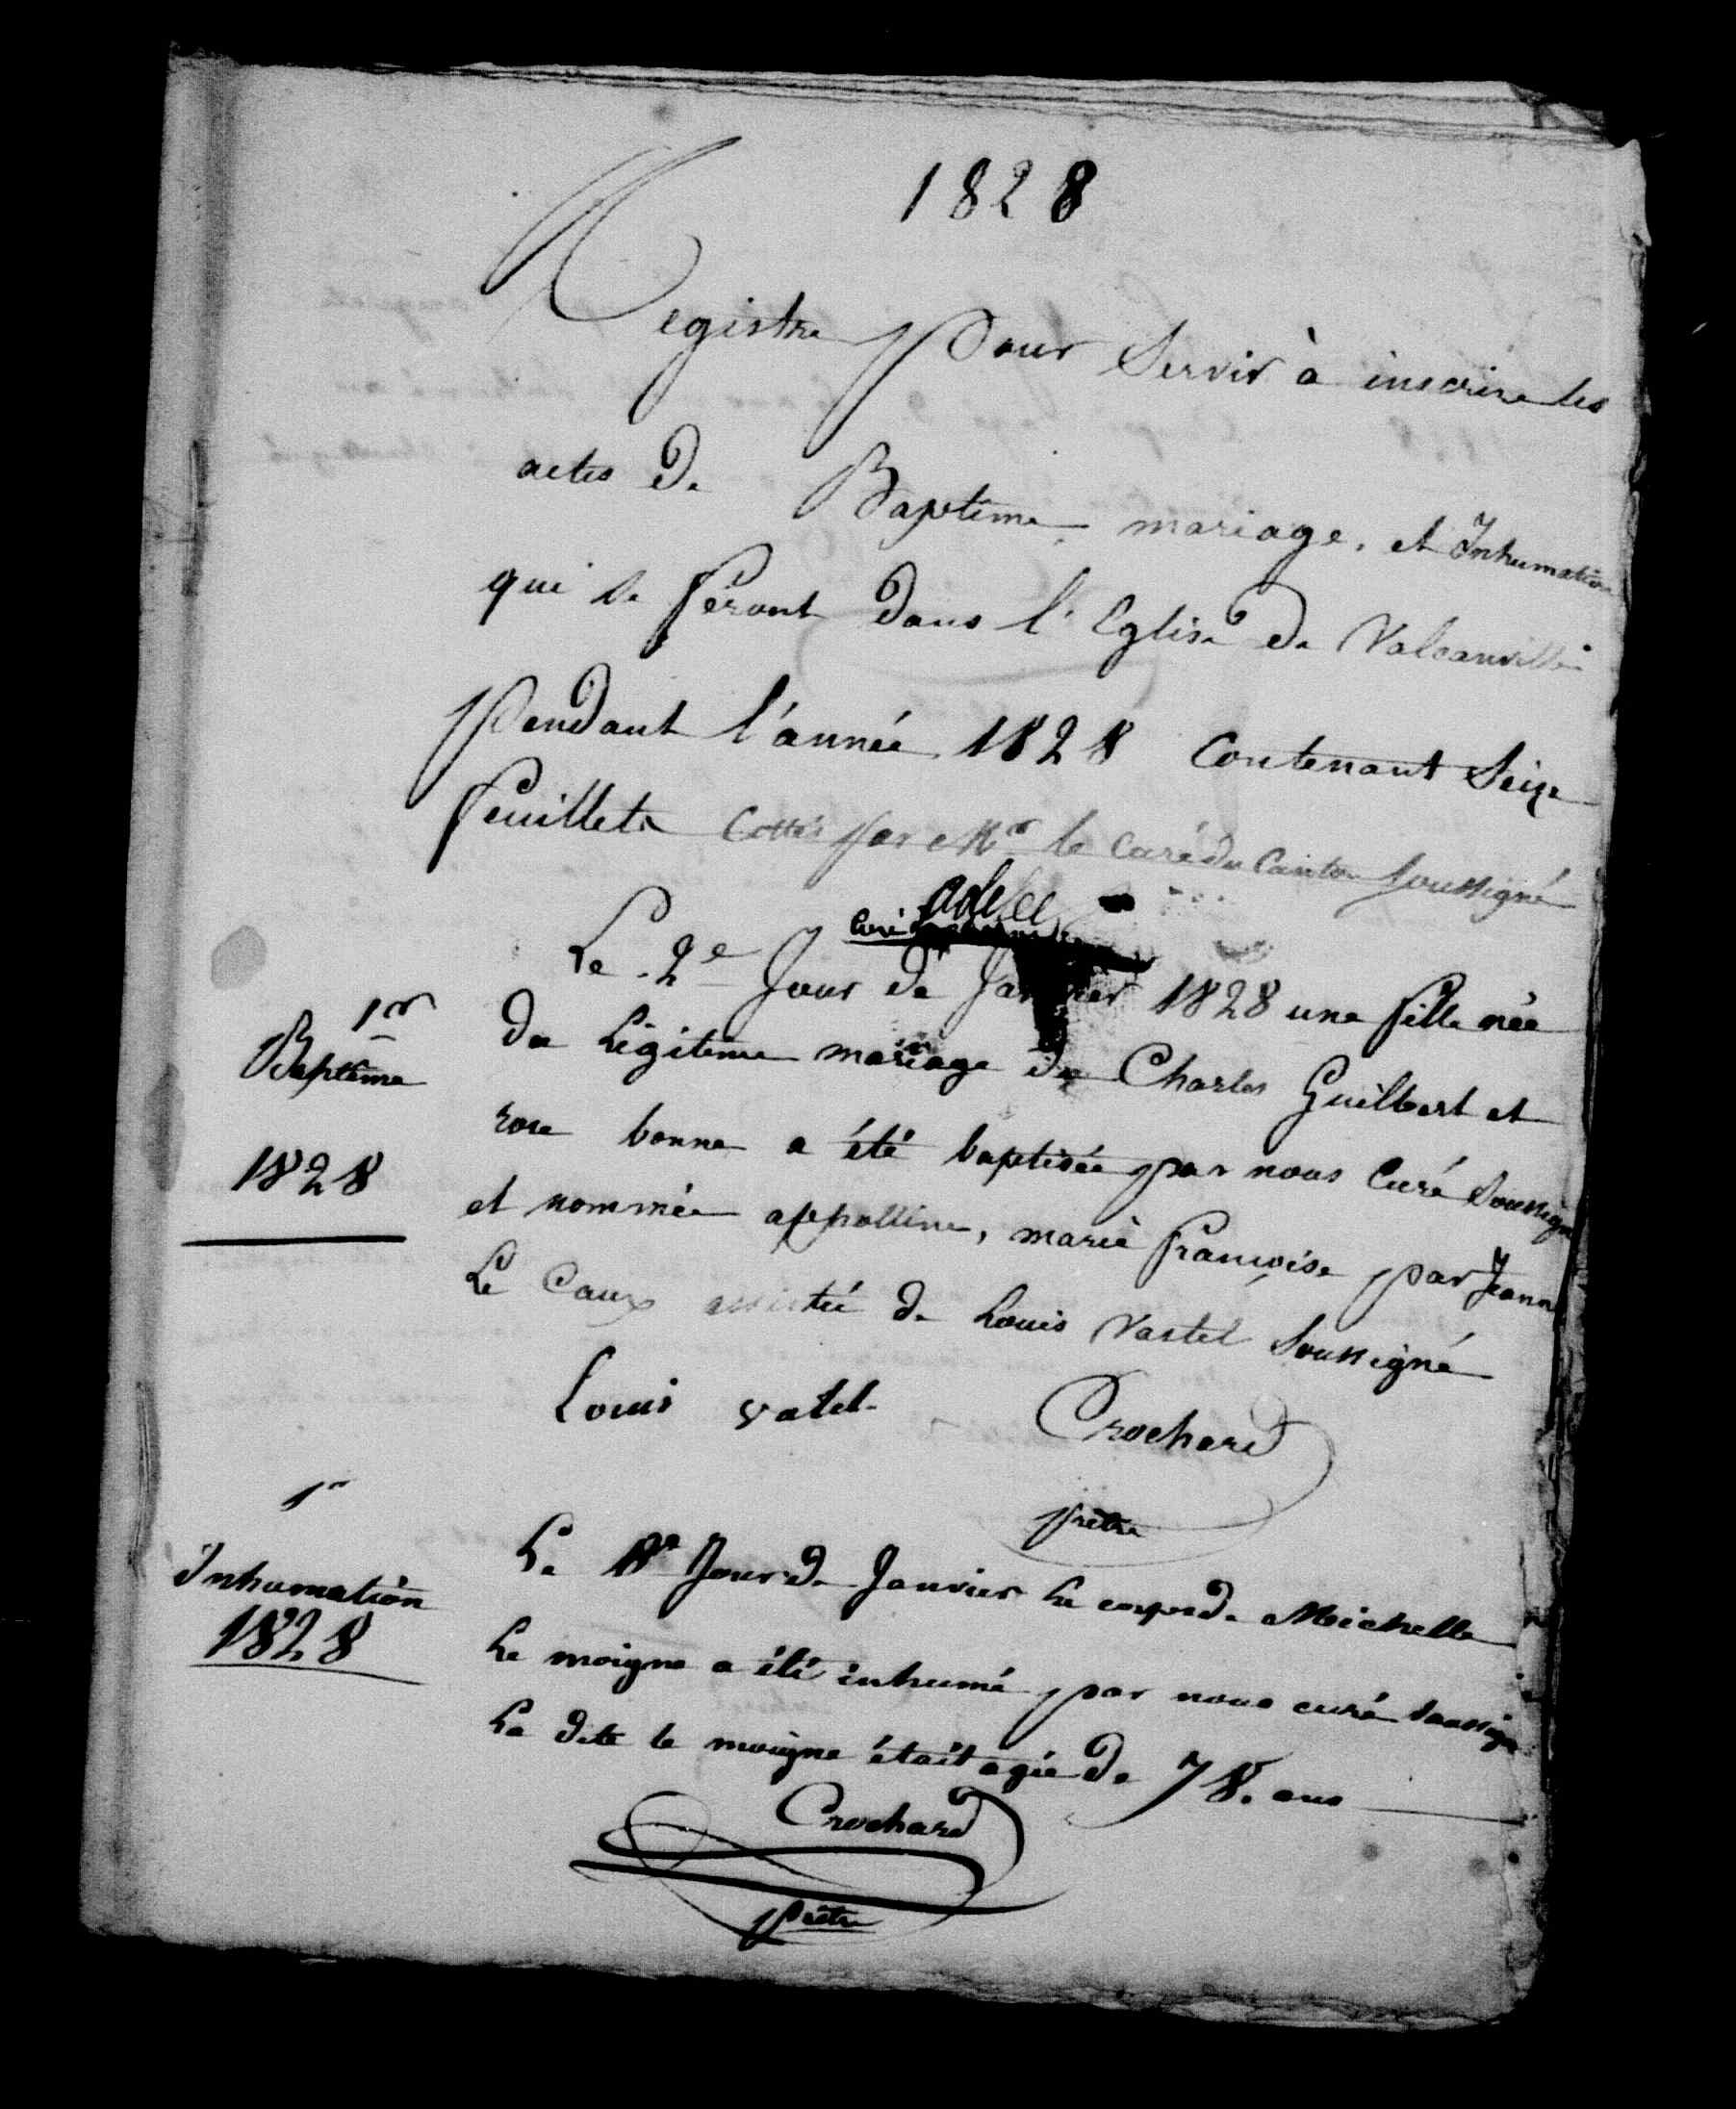 1828
Registre pour Servir à inscrire les
actes de Baptême mariage, et Inhumation
qui se feront dans l'Eglise de Valcanville
pendant l'année 1828 Contenant Seize
feuillets Cottés par Mr le Curé du Canton Soussigné
Curé
Le 2e Jour de Janvier 1828 une fille née
1er
Baptême
1828
du Légitime mariage de Charles Guilbert et
rose bonne a été baptisée par nous Curé Soussigné
et nommée appolline, marie françoise par Jeanne
Le Caux assistée de Louis Vastel Soussigné
Louis vatel Crochard
prêtre
1er
Inhumation
1828
Le Jour de Janvier Le corps de Michelle
Le moigne a été inhumé par nous curé Soussigné
La dite le moigne était agée de 78. ans
Crochard
prêtre